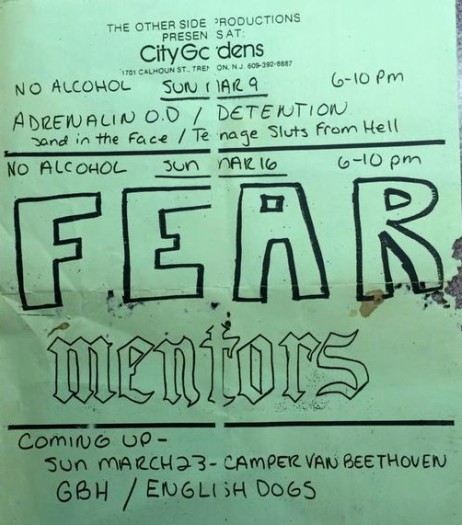 THE OTHER SIDE PRODUCTIONS
PRESEN S AT:
City Ga dens
1701 CALHOUN ST., TRENTON, N.J. 609-392-8887
NO ALCOHOL SUN MAR 9 6-10 pm
ADRENALIN O.D / DETENTION
Sand in the Face / Teenage Sluts From Hell
NO ALCOHOL SUN MAR 16 6-10 pm
FEAR
mentors
COMING UP -
SUN MARCH 23 - CAMPER VAN BEETHOVEN
GBH / ENGLISH DOGS